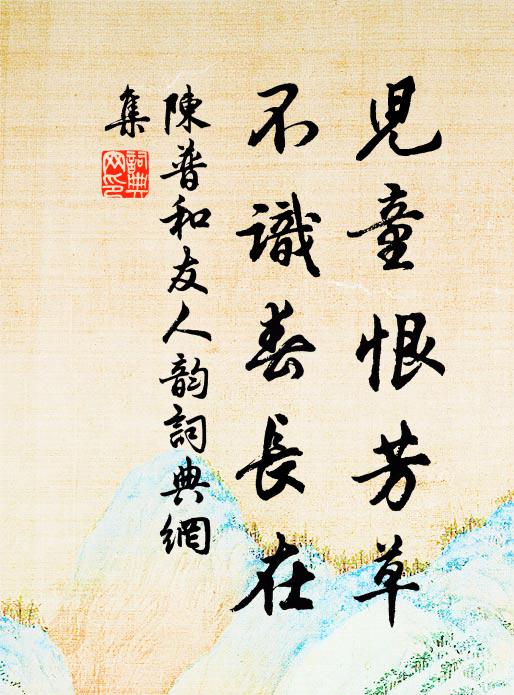 兒童恨芳草
不識春長在
陳普和友人韵詞典網
集
詞典網印